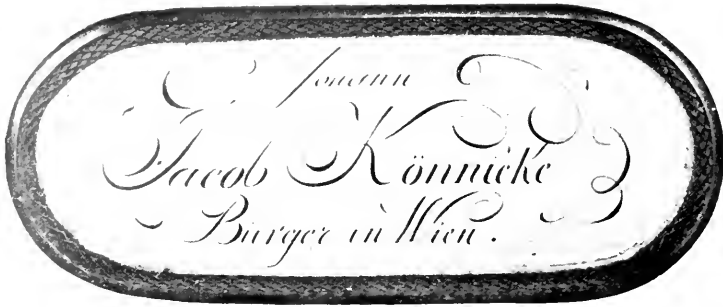 Johann
Jacob Könnicke
Bürger in Wien.